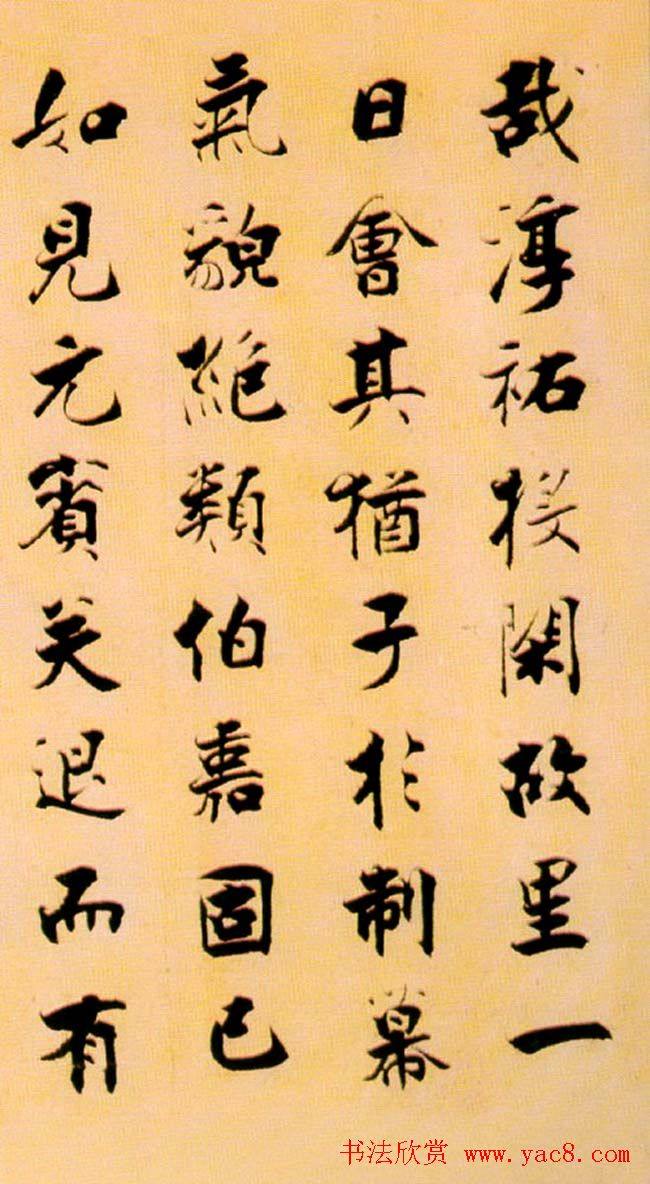 哉淳祐授閑故里一
日會其猶子於制幕
氣貌絶類伯嘉固已
如見元賓矣退而有
书法欣赏 www.yac8.com